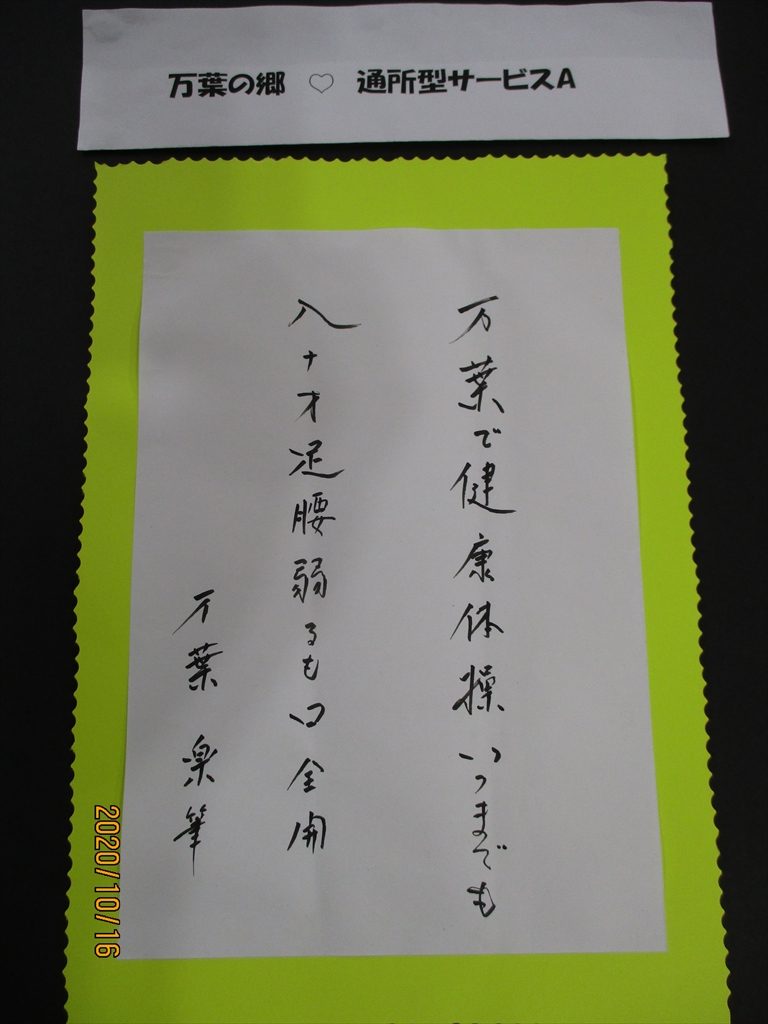 万葉の郷 ♡ 通所型サービスA
万葉で健康体操いつまでも
八十才足腰弱るも口全開
万葉 楽筆
2020/10/16